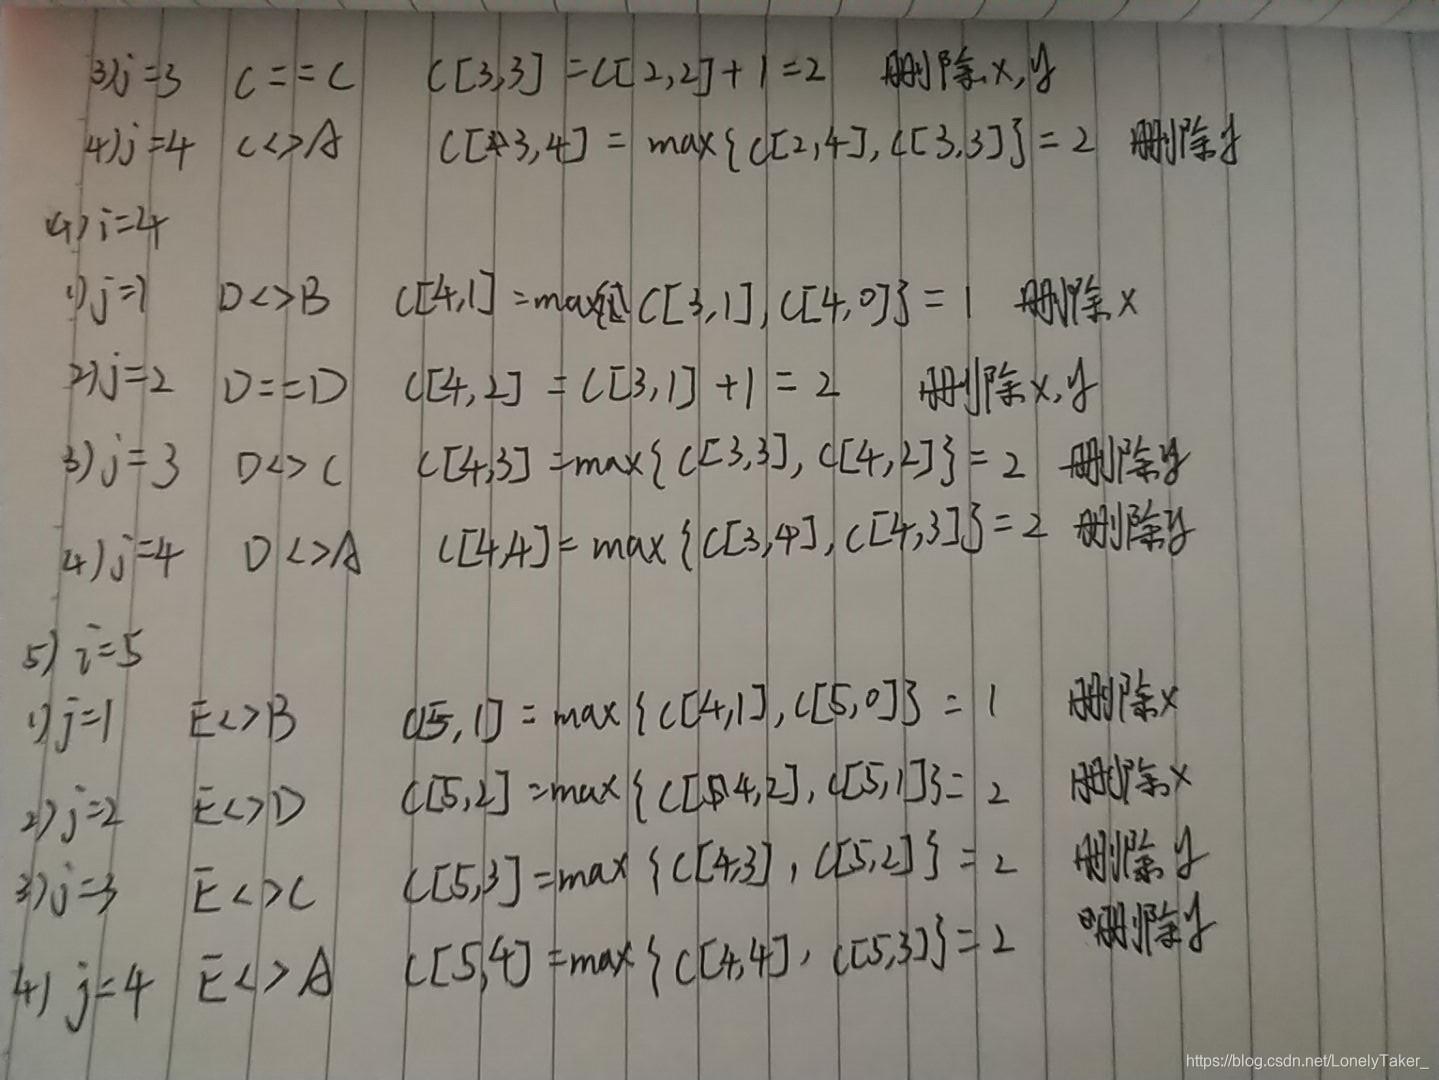 3) j=3 C==C C[3,3]=C[2,2]+1=2 删除x,y
4) j=4 C<>A C[3,4]=max{C[2,4],C[3,3]}=2 删除y
4) i=4
1) j=1 D<>B C[4,1]=max{C[3,1],C[4,0]}=1 删除x
2) j=2 D==D C[4,2]=C[3,1]+1=2 删除x,y
3) j=3 D<>C C[4,3]=max{C[3,3],C[4,2]}=2 删除y
4) j=4 D<>A C[4,4]=max{C[3,4],C[4,3]}=2 删除y
5) i=5
1) j=1 E<>B C[5,1]=max{C[4,1],C[5,0]}=1 删除x
2) j=2 E<>D C[5,2]=max{C[4,2],C[5,1]}=2 删除x
3) j=3 E<>C C[5,3]=max{C[4,3],C[5,2]}=2 删除y
4) j=4 E<>A C[5,4]=max{C[4,4],C[5,3]}=2 删除y
https://blog.csdn.net/LonelyTaker_